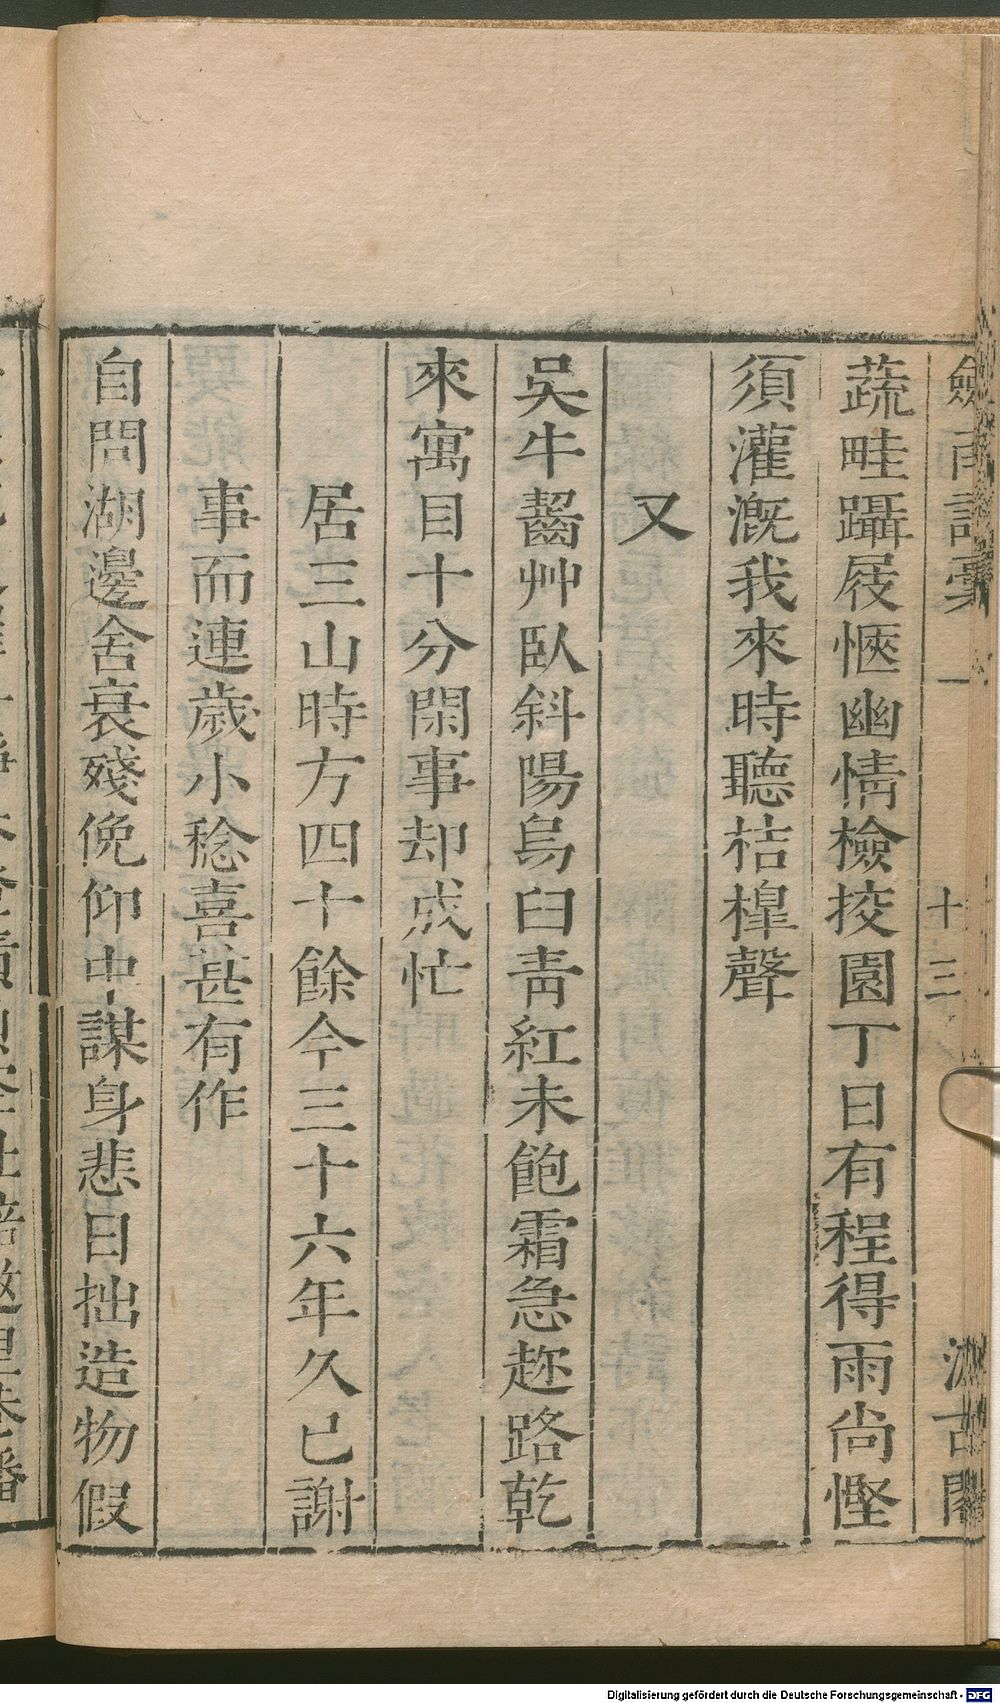 劍南詩稾 一 十三 汲古閣
蔬畦躡屐愜幽情檢挍園丁日有程得雨尚慳
須灌溉我來時聽桔橰聲
又
吳牛齧艸臥斜陽烏臼靑紅未飽霜急趂路乾
來寓目十分閑事却成忙
居三山時方四十餘今三十六年久已謝
事而連歲小稔喜甚有作
自問湖邊舍衰殘俛仰中謀身悲日拙造物假
Digitalisierung gefördert durch die Deutsche Forschungsgemeinschaft - DFG